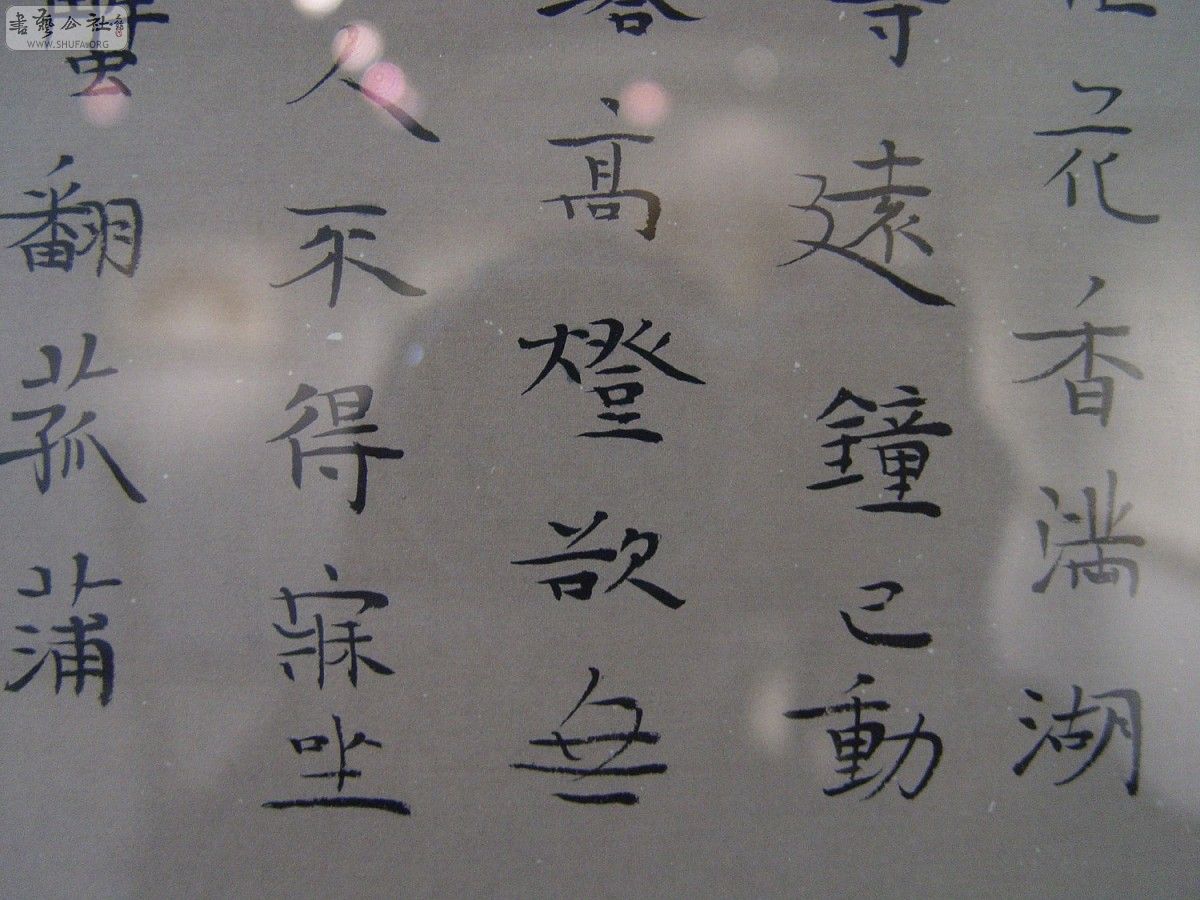 花香滿湖
遠鐘已動
高燈欲無
人不得寐坐
翻菰蒲
書藝公社
WWW.SHUFA.ORG